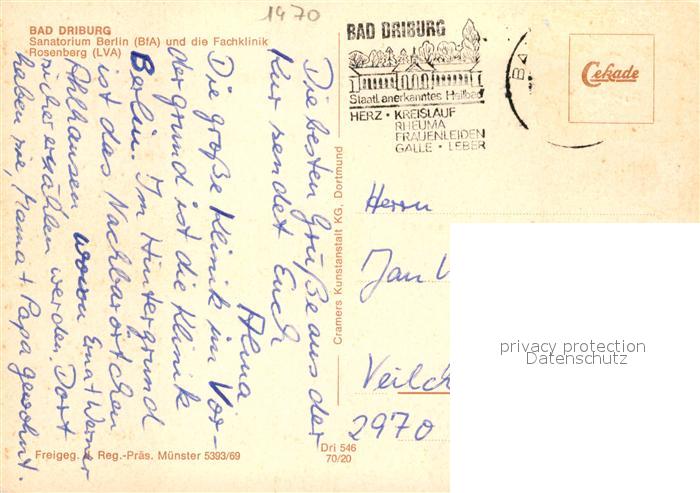 1970
BAD DRIBURG
Sanatorium Berlin (BfA) und die Fachklinik
Rosenberg (LVA)
BAD DRIBURG
Staatl. anerkanntes Heilbad
HERZ · KREISLAUF
RHEUMA
FRAUENLEIDEN
GALLE · LEBER
Cekade
Die besten Grüße aus der
Kur sendet Euch
Alma
Die große Klinik im Vor-
dergrund ist die Klinik
Berlin. Im Hintergrund
ist das Nachbarörtchen
Alhausen wovon Erna + Werner
sicher erzählen werden. Dort
haben sie, Mama + Papa gewohnt.
Cramers Kunstanstalt KG, Dortmund
Herrn
Jan
Veilch
2970
privacy protection
Datenschutz
Freigeg. d. Reg.-Präs. Münster 5393/69
Dri 546
70/20